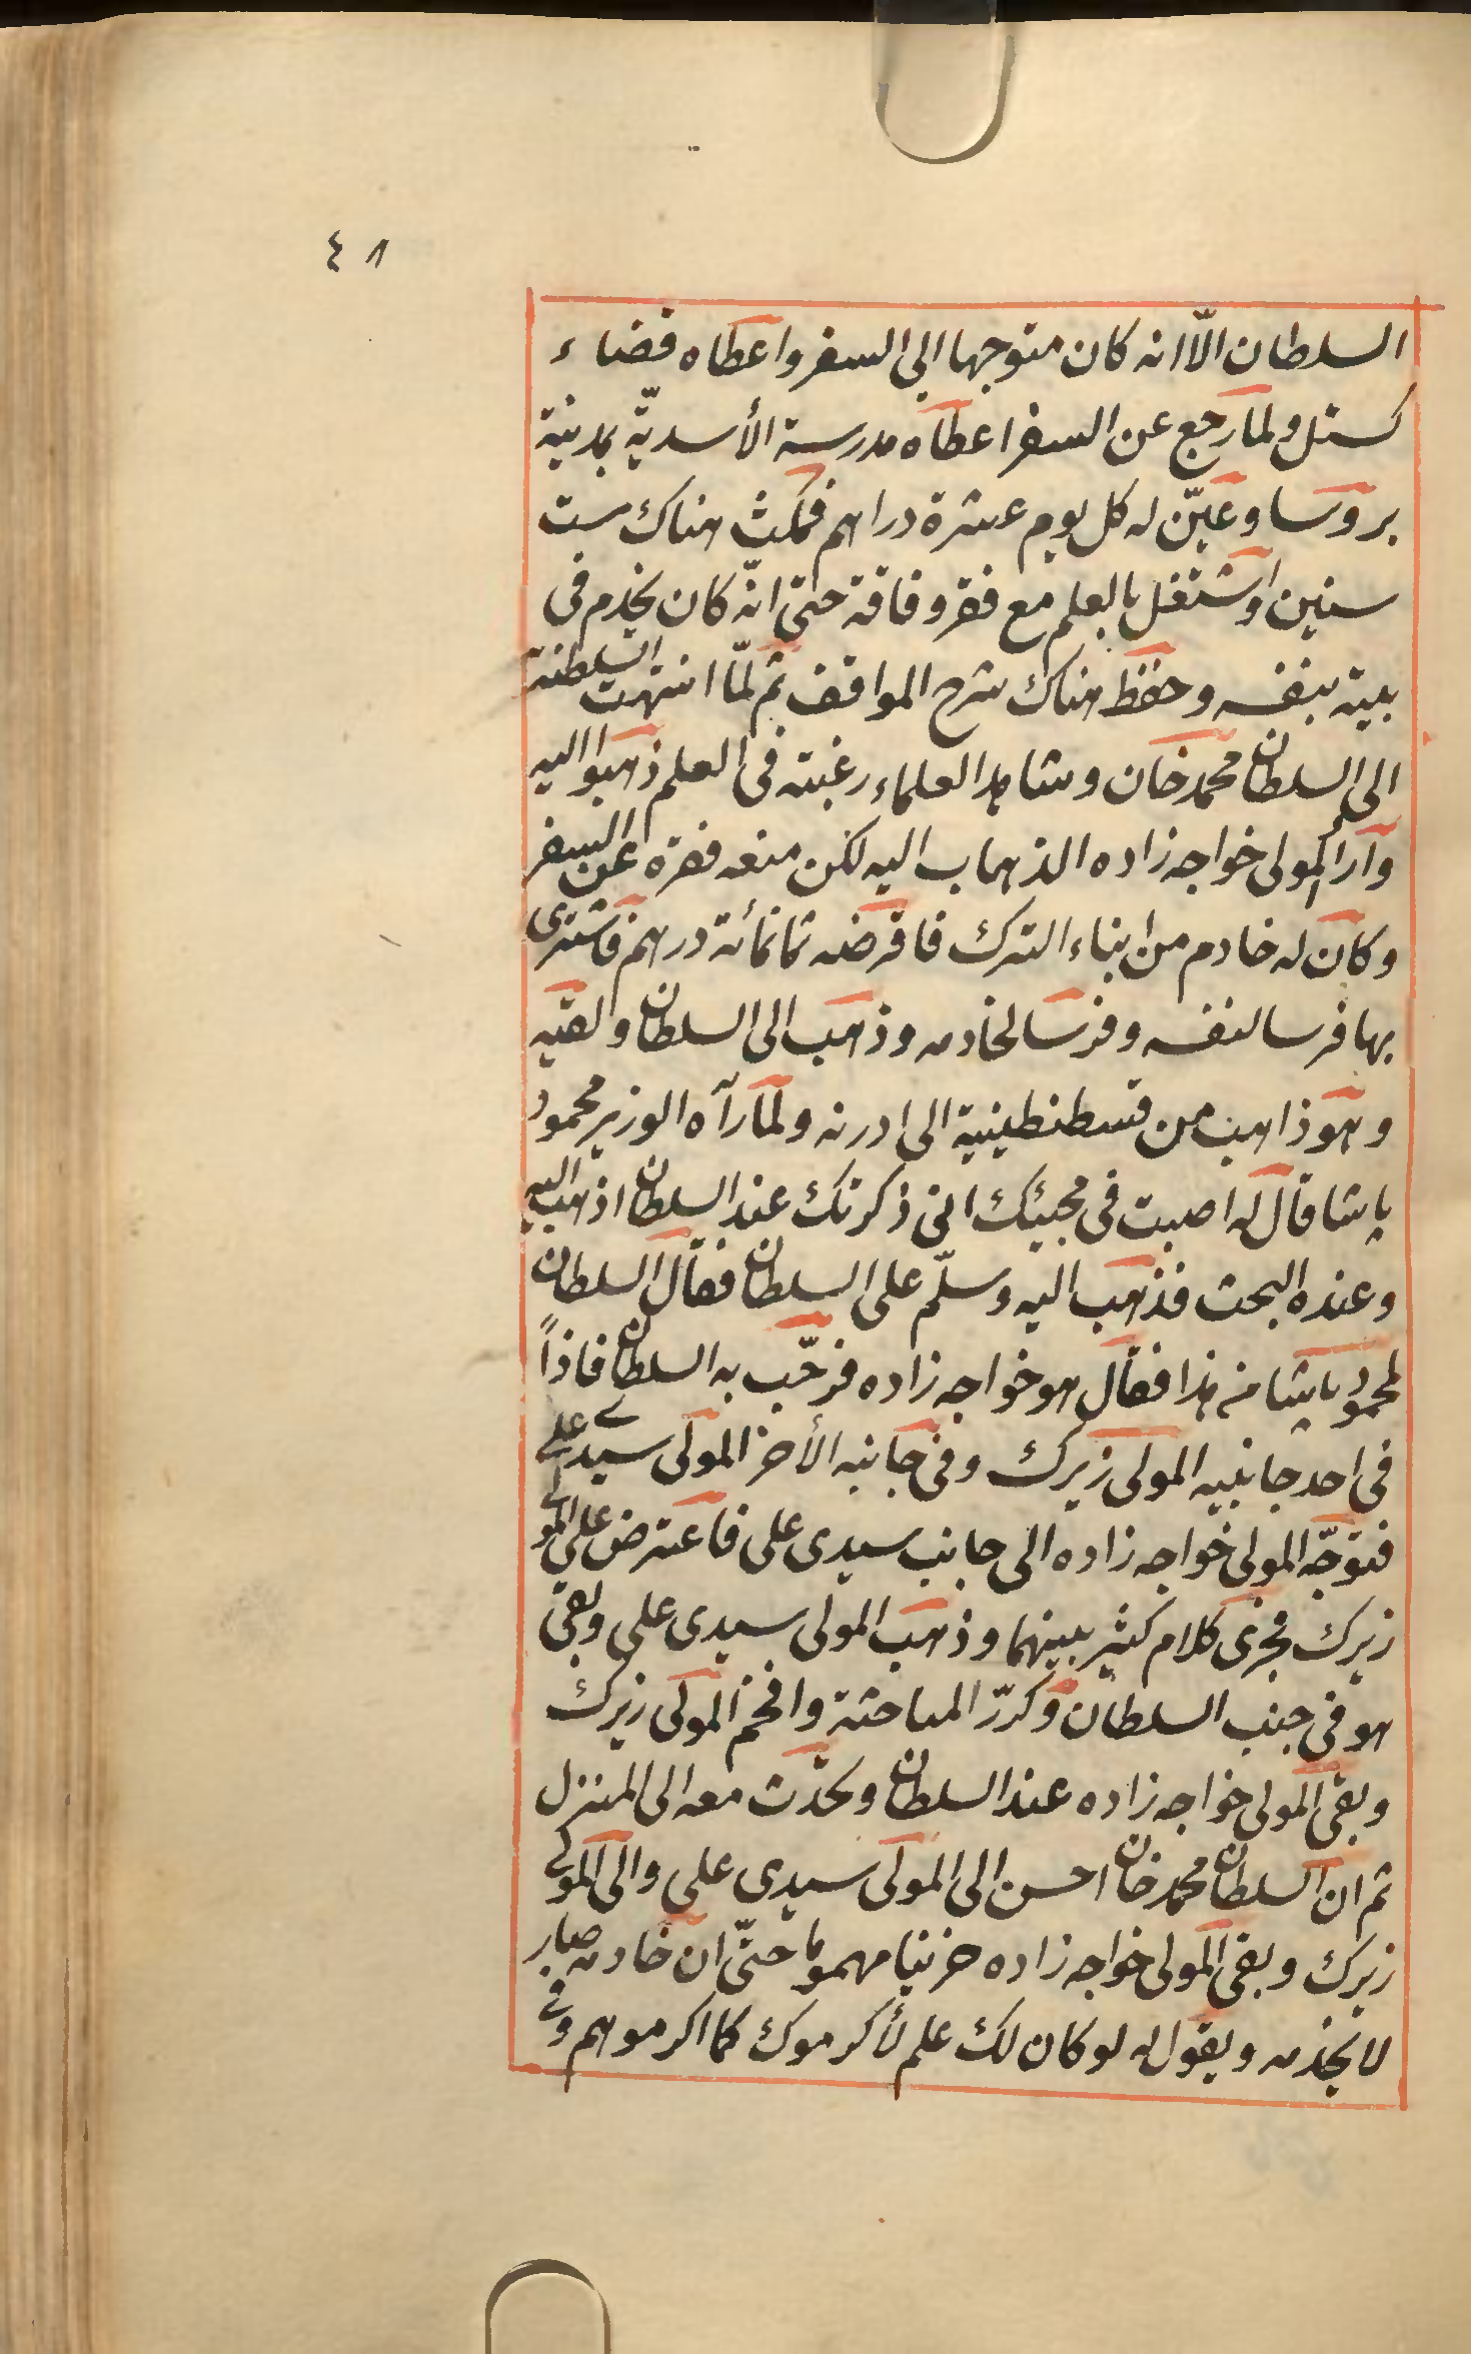 ٤٨
السلطان الّا انه كان متوجها الى السفر واعطاه قضاء
كستل ولما رجع عن السفر اعطاه مدرسة الأسديّة بمدينة
بروسا وعيّن له كل يوم عشرة دراهم فمكث هناك ست
سنين واشتغل بالعلم مع فقر وفاقة حتى انّه كان يخدم فى
بيته بنفسه وحفظ هناك شرح المواقف ثم لمّا انتهت السلطنة
الى السلطان محمد خان وشاهد العلماء رغبته فى العلم ذهبوا اليه
وأراد المولى خواجه زاده الذهاب اليه لكن منعه فقره عن السفر
وكان له خادم من ابناء الترك فاقرضه ثمانمائة درهم فاشترى
بها فرسا لنفسه وفرسا لخادمه وذهب الى السلطان ولقيه
وهو ذاهب من قسطنطينية الى ادرنه ولما رآه الوزير محمود
پاشا قال له اصبت فى مجيئك انى ذكرتك عند السلطان اذهب اليه
وعنده البحث فذهب اليه وسلّم على السلطان فقال السلطان
لمحمود پاشا من هذا فقال هو خواجه زاده فرحّب به السلطان فاذاً
فى احد جانبيه المولى زيرك وفى جانبه الأخر المولى سيدى على
فتوجّه المولى خواجه زاده الى جانب سيدى على فاعترض على المولى
زيرك فجرى كلام كثير بينهما وذهب المولى سيدى على وبقى
هو فى جنب السلطان وكرّر المباحثة وافحم المولى زيرك
وبقى المولى خواجه زاده عند السلطان وتحدّث معه الى المنزل
ثم ان السلطان محمد خان احسن الى المولى سيدى على والى المولى
زيرك وبقى المولى خواجه زاده حزينا مهموما حتّى ان خادمه صار
لا يخدمه ويقول له لو كان لك علم لأكرموك كما اكرموهم وفى